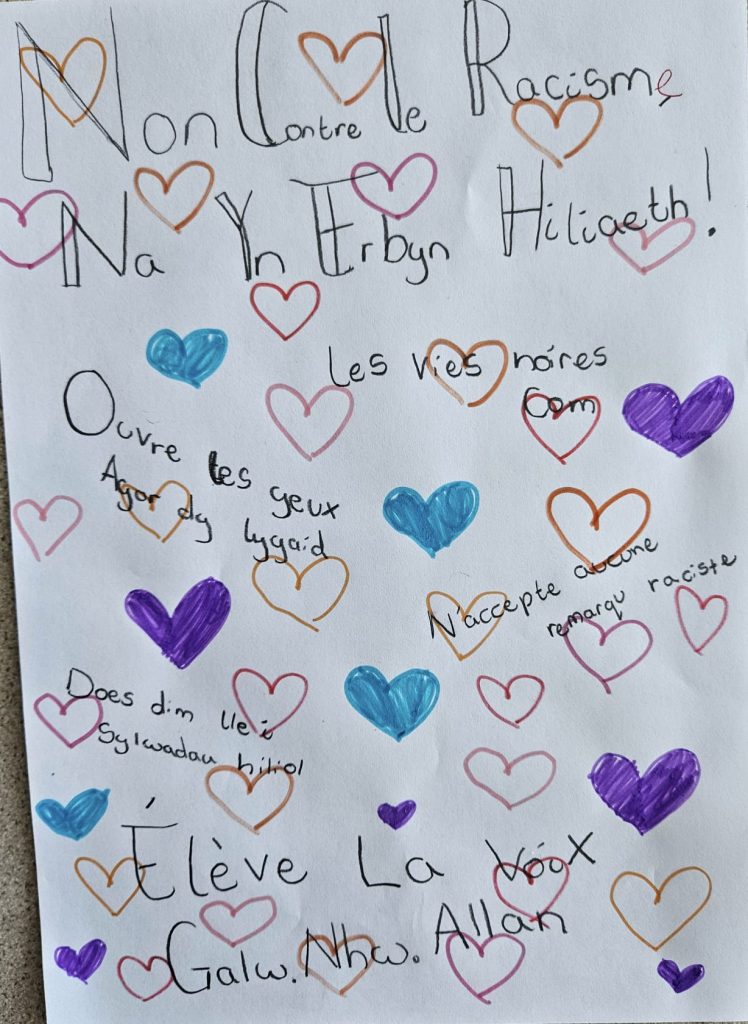 Non Contre le Racisme
Na Yn Erbyn Hiliaeth!
Les vies noires
Com
Ouvre les yeux
Agor dy lygaid
N'accepte aucune
remarqu raciste
Does dim lle i
Sylwadau hiliol
Élève La Voix
Galw. Nhw. Allan